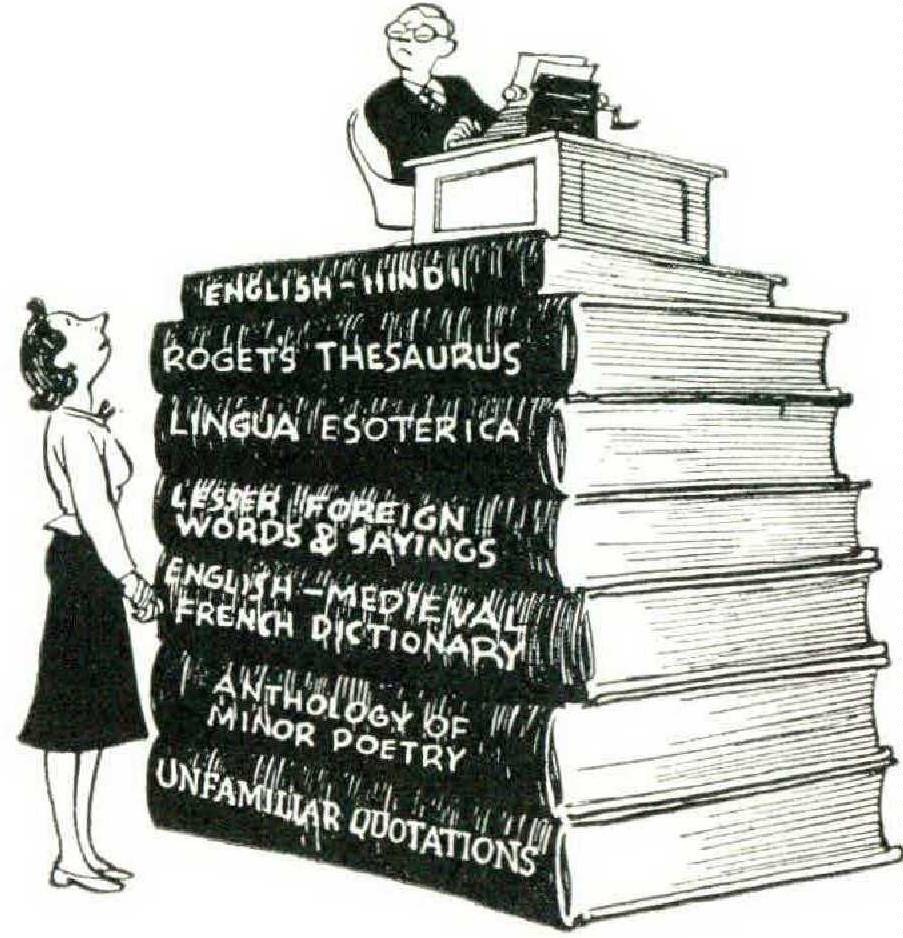 ENGLISH-HINDI
ROGET'S THESAURUS
LINGUA ESOTERICA
LESSER FOREIGN
WORDS & SAYINGS
ENGLISH-MEDIEVAL
FRENCH DICTIONARY
ANTHOLOGY OF
MINOR POETRY
UNFAMILIAR QUOTATIONS